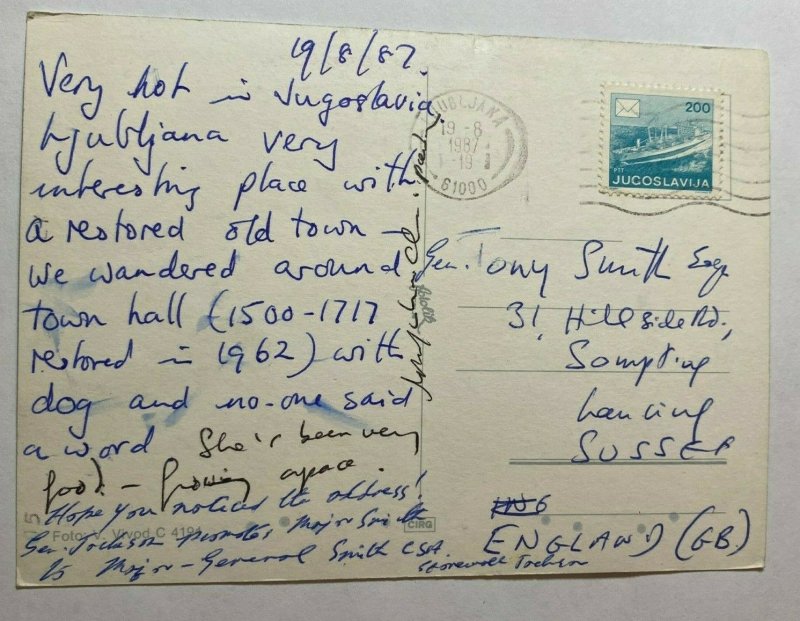 19/8/87.
Very hot in Jugoslavia.
Ljubljana very
interesting place with
a restored old town –
we wandered around
town hall (1500-1717
restored in 1962) with
dog and no-one said
a word She's been very
good – growing apace.
Hope you noticed the address!
Gen. Jackson promotes Major Smith
to Major-General Smith CSA.
Stonewall Jackson
Foto: V. Vivod C 4194
5
CIRG
LJUBLJANA
19-8
1987
19
61000
200
PTT
JUGOSLAVIJA
Gen. Tony Smith Esq
31, Hillside Rd.,
Sompting
Lancing
SUSSEX
ENGLAND (GB.)